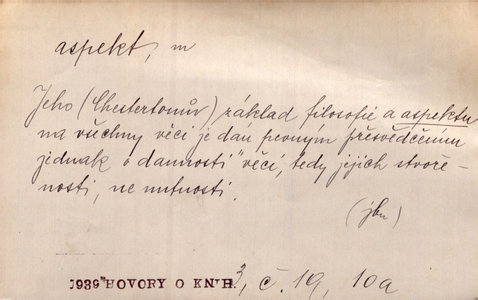 aspekt, m
Jeho (Chestertonův) základ filosofie a aspektu
na všechny věci je dán pevným přesvědčením
jednak o danosti věcí, tedy jejich stvoře-
nosti, ne nutnosti.
(jbn)
1939 HOVORY O KNIH. 3, č. 19, 10a